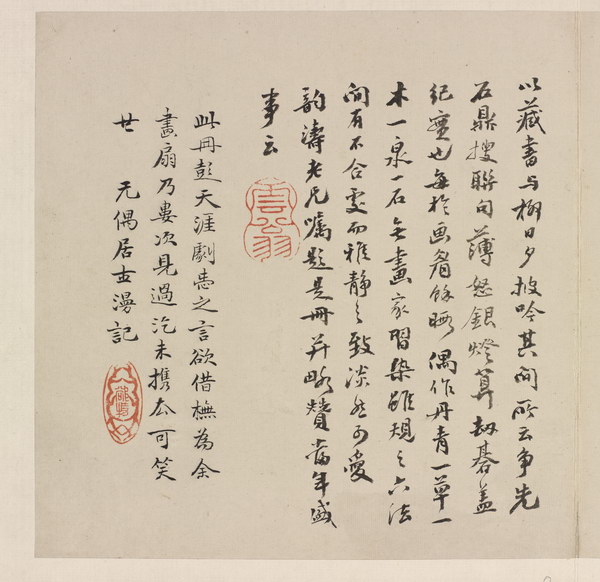 以藏書与棚日夕披吟其間所云争先
石鼎搜聯句薄怒銀燈算劫棊蓋
紀實也每於画眉餘暇偶作丹青一草一
木一泉一石無畫家習染雖規之六法
間有不合處而雅静之致淡然可愛
韵濤老兄嘱題是冊并略贊當年盛
事云
雲翁
此冊彭天涯劇恚之言欲借橅為余
畫扇乃婁次見過汔未攜本可笑
廿 元偶居士漫記